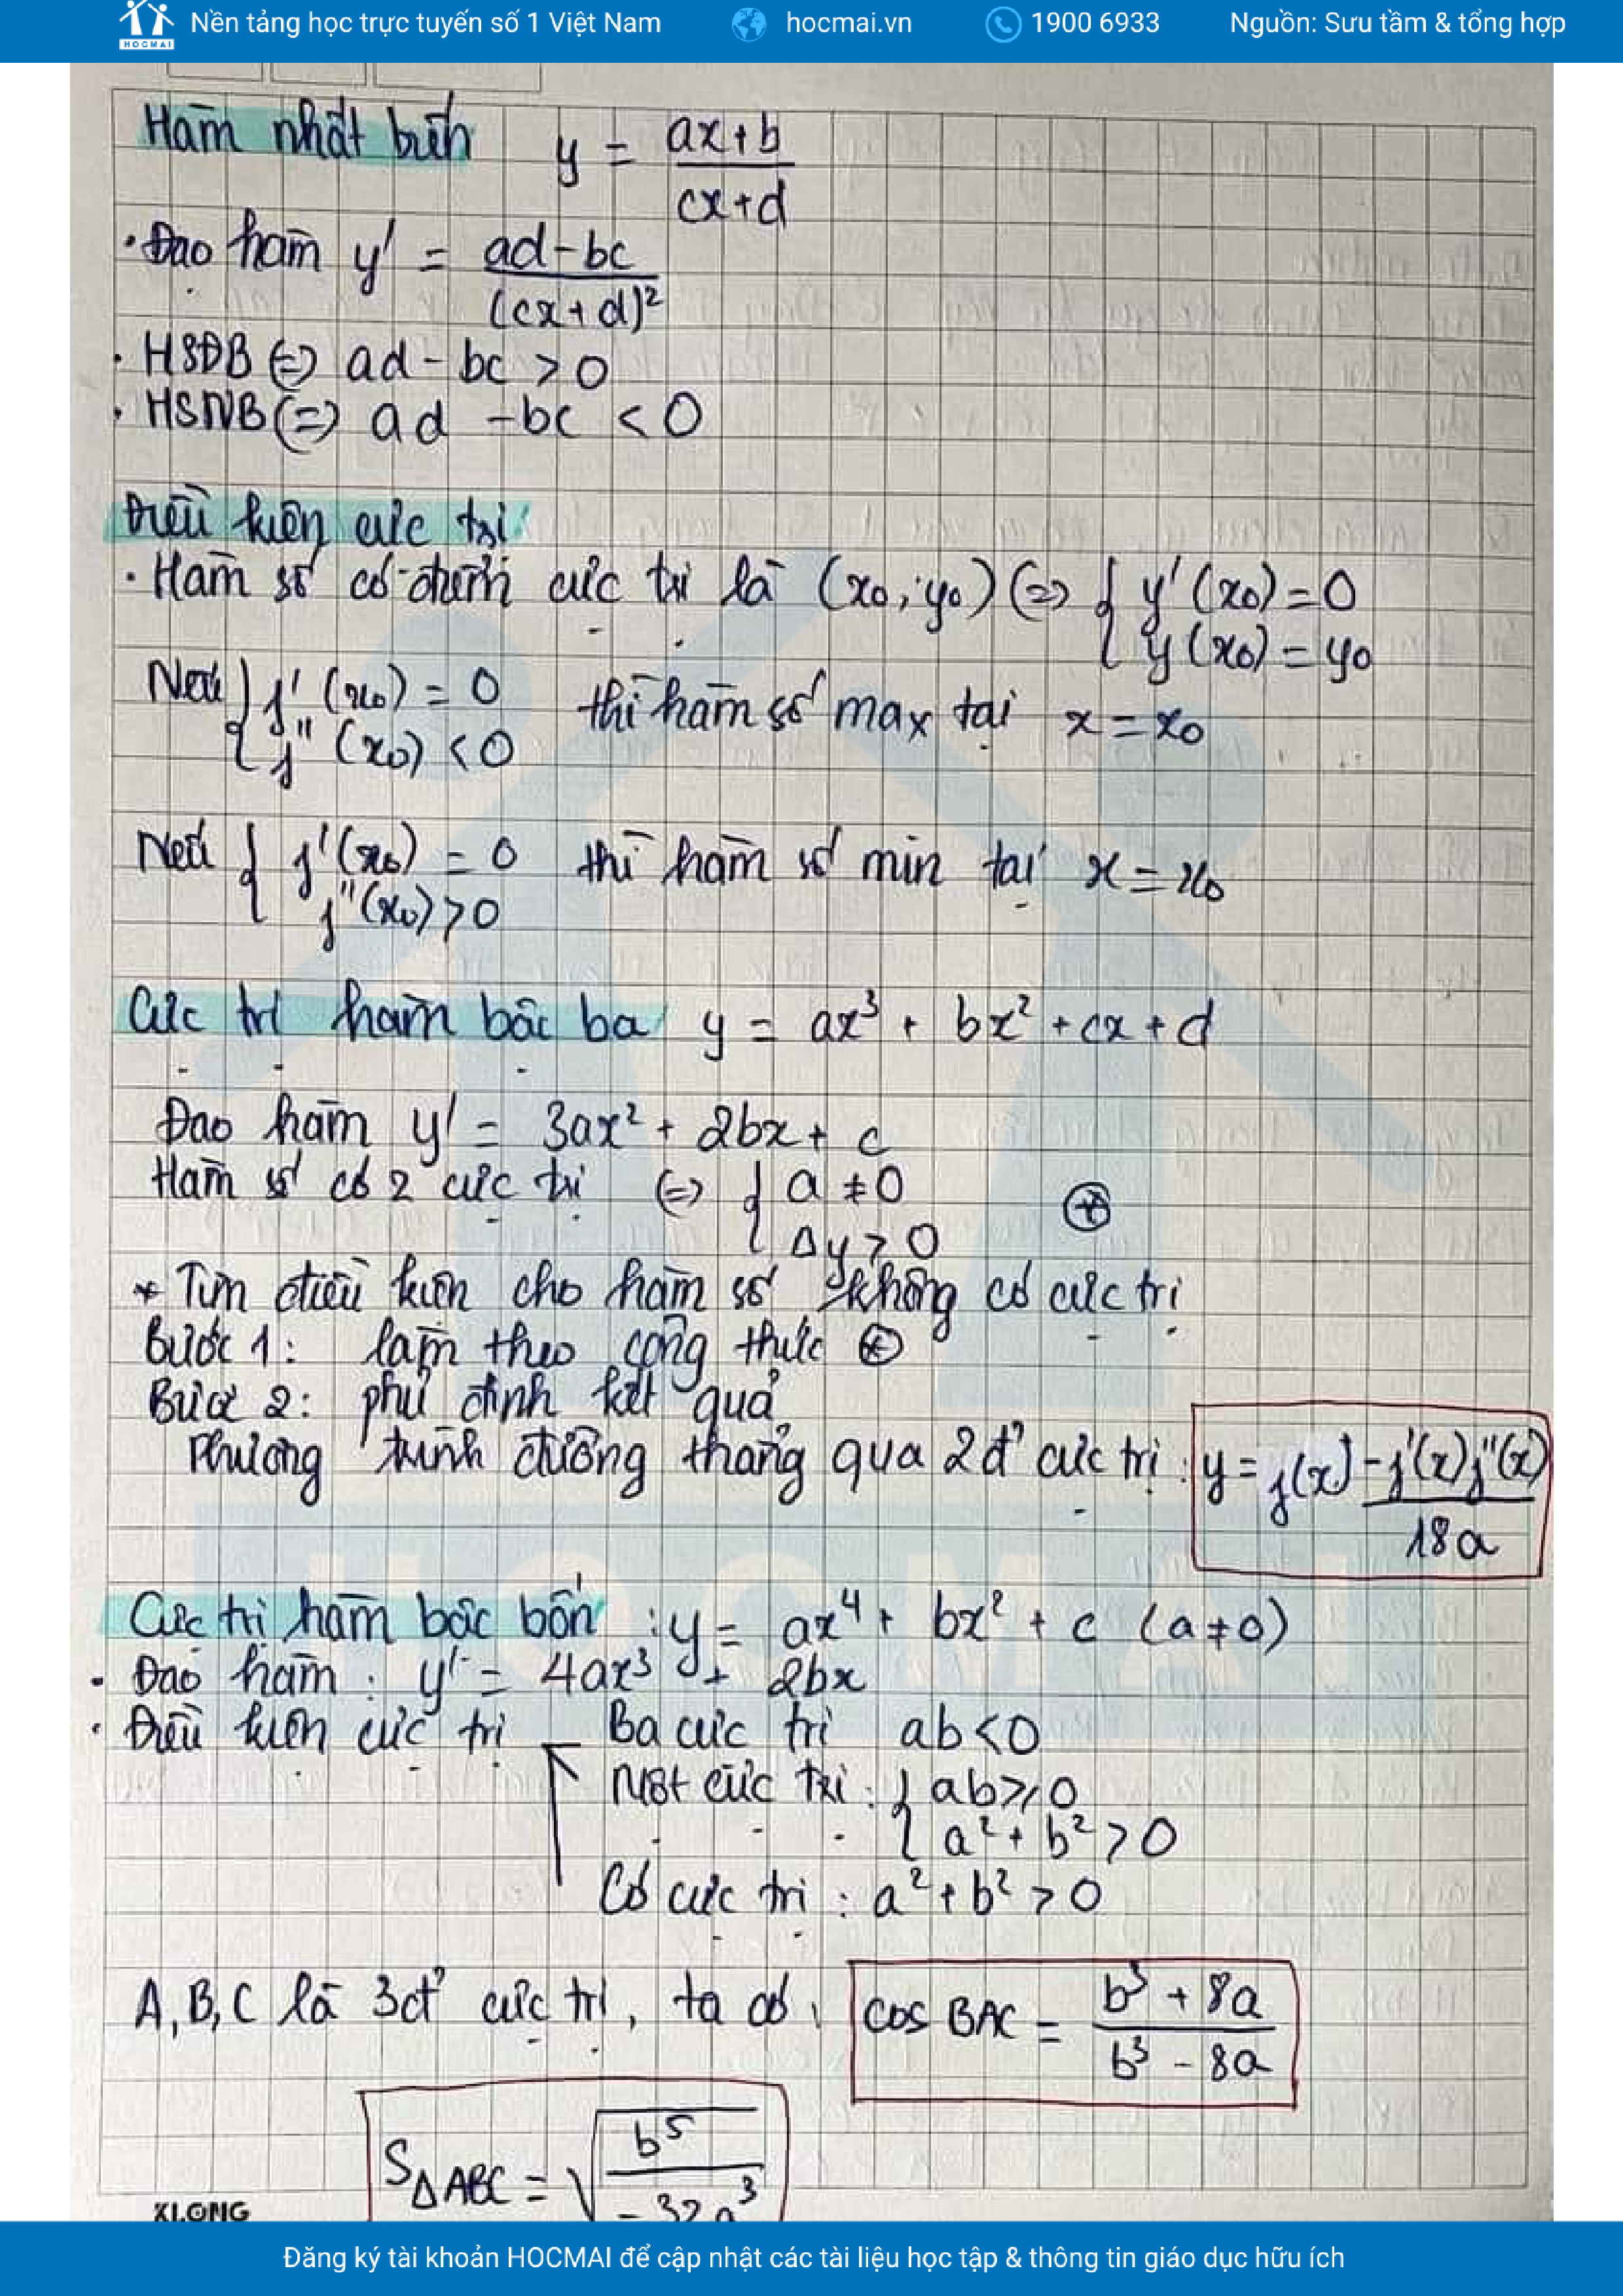 HOCMAI
Nền tảng học trực tuyến số 1 Việt Nam
hocmai.vn
1900 6933
Nguồn: Sưu tầm & tổng hợp
Hàm nhất biến y = (ax+b)/(cx+d)
· Đạo hàm y' = (ad-bc)/(cx+d)²
· HSĐB (=) ad - bc > 0
· HSNB (=) ad - bc < 0
Điều kiện cực trị
· Hàm số có điểm cực trị là (x₀; y₀) (=) { y'(x₀) = 0
y(x₀) = y₀
Nếu { f'(x₀) = 0
f''(x₀) < 0 thì hàm số max tại x = x₀
Nếu { f'(x₀) = 0 thì hàm số min tại x = x₀
f''(x₀) > 0
Cực trị hàm bậc ba y = ax³ + bx² + cx + d
Đạo hàm y' = 3ax² + 2bx + c
Hàm số có 2 cực trị (=) { a ≠ 0 ⊛
Δy' > 0
* Tìm điều kiện cho hàm số không có cực trị
Bước 1: làm theo công thức ⊛
Bước 2: phủ định kết quả
Phương trình đường thẳng qua 2đ' cực trị: y = f(x) - f'(x)f''(x)/18a
HOCMAI
Cực trị hàm bậc bốn: y = ax⁴ + bx² + c (a ≠ 0)
· Đạo hàm: y' = 4ax³ + 2bx
· Điều kiện cực trị Ba cực trị ab < 0
Một cực trị: { ab ≥ 0
a² + b² > 0
Có cực trị: a² + b² > 0
A, B, C là 3đ' cực trị, ta có: cos BAC = (b³ + 8a)/(b³ - 8a)
S△ABC = √(b⁵/-32a³)
KLONG
Đăng ký tài khoản HOCMAI để cập nhật các tài liệu học tập & thông tin giáo dục hữu ích